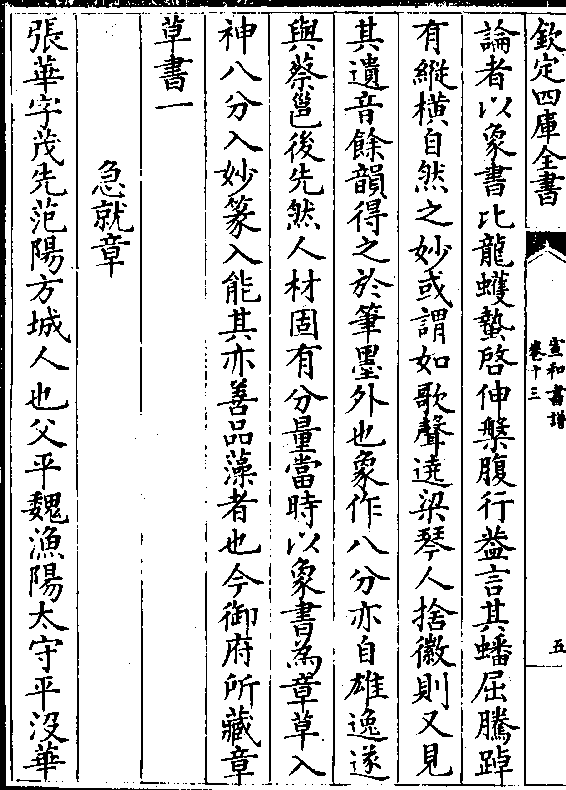 欽定四庫全書
宣和書譜
卷十三
五
論者以象書比龍蠖蟄啓伸槃腹行葢言其蟠屈騰踔
有縱横自然之妙或謂如歌聲遶梁琴人捨徽則又見
其遺音餘韻得之於筆墨外也象作八分亦自雄逸遂
與蔡邕後先然人材固有分量當時以象書為章草入
神八分入妙篆入能其亦善品藻者也今御府所藏章
草書一
急就章
張華字茂先范陽方城人也父平魏漁陽太守平沒華